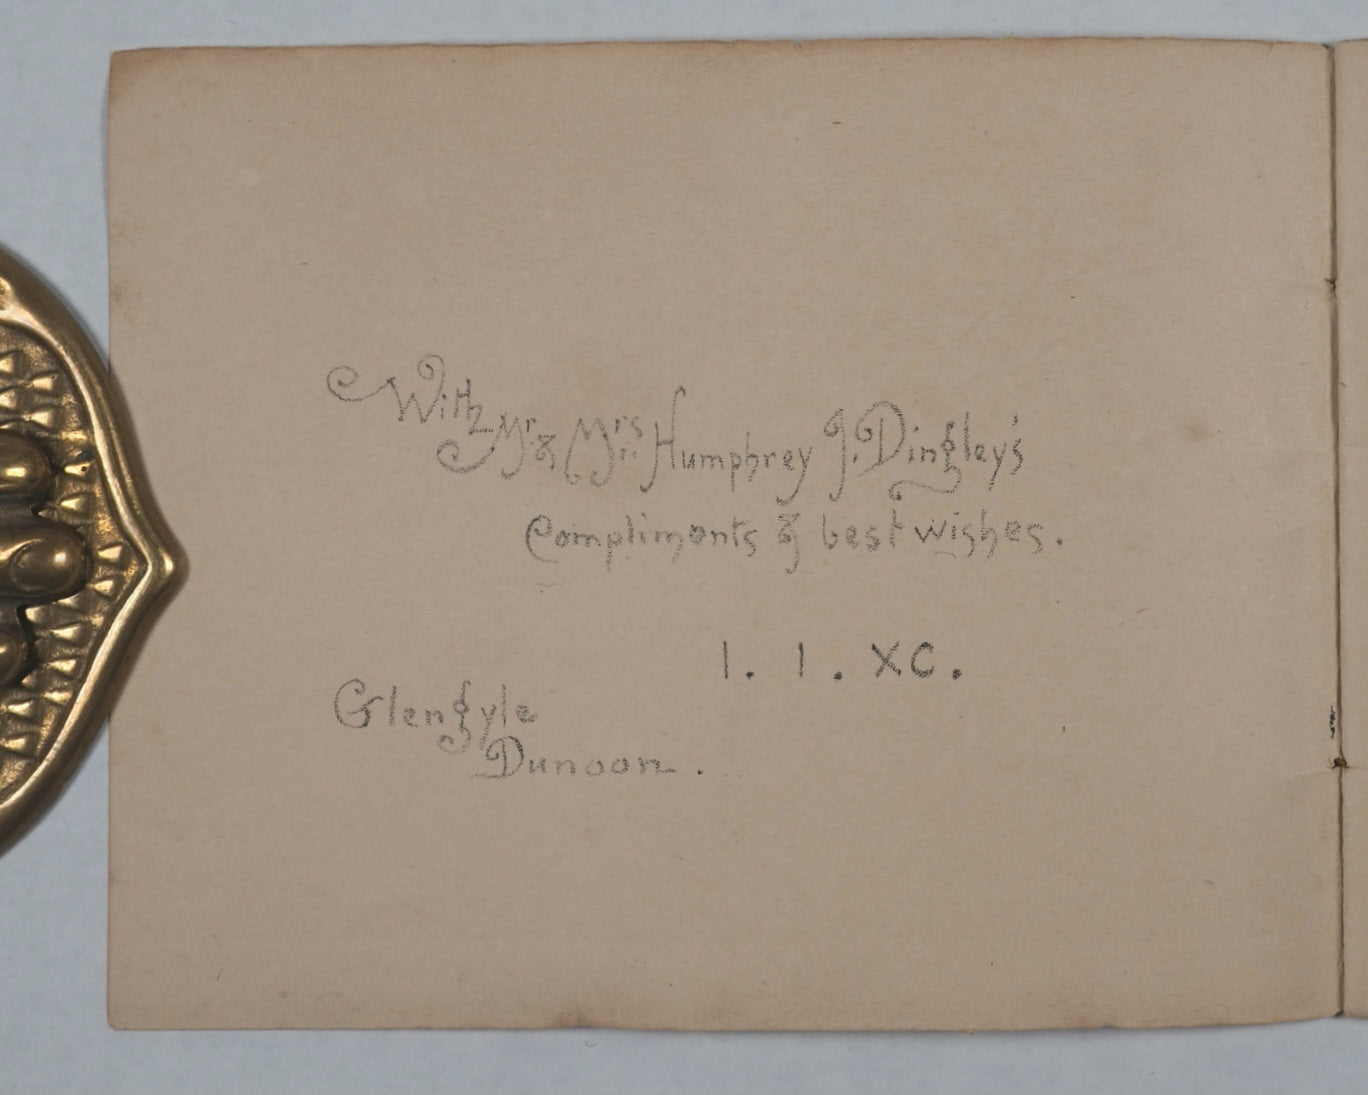 With Mr. & Mrs. Humphrey J. Dingley's
Compliments & best wishes.
1. 1. XC.
Glengyle
Dunoon.